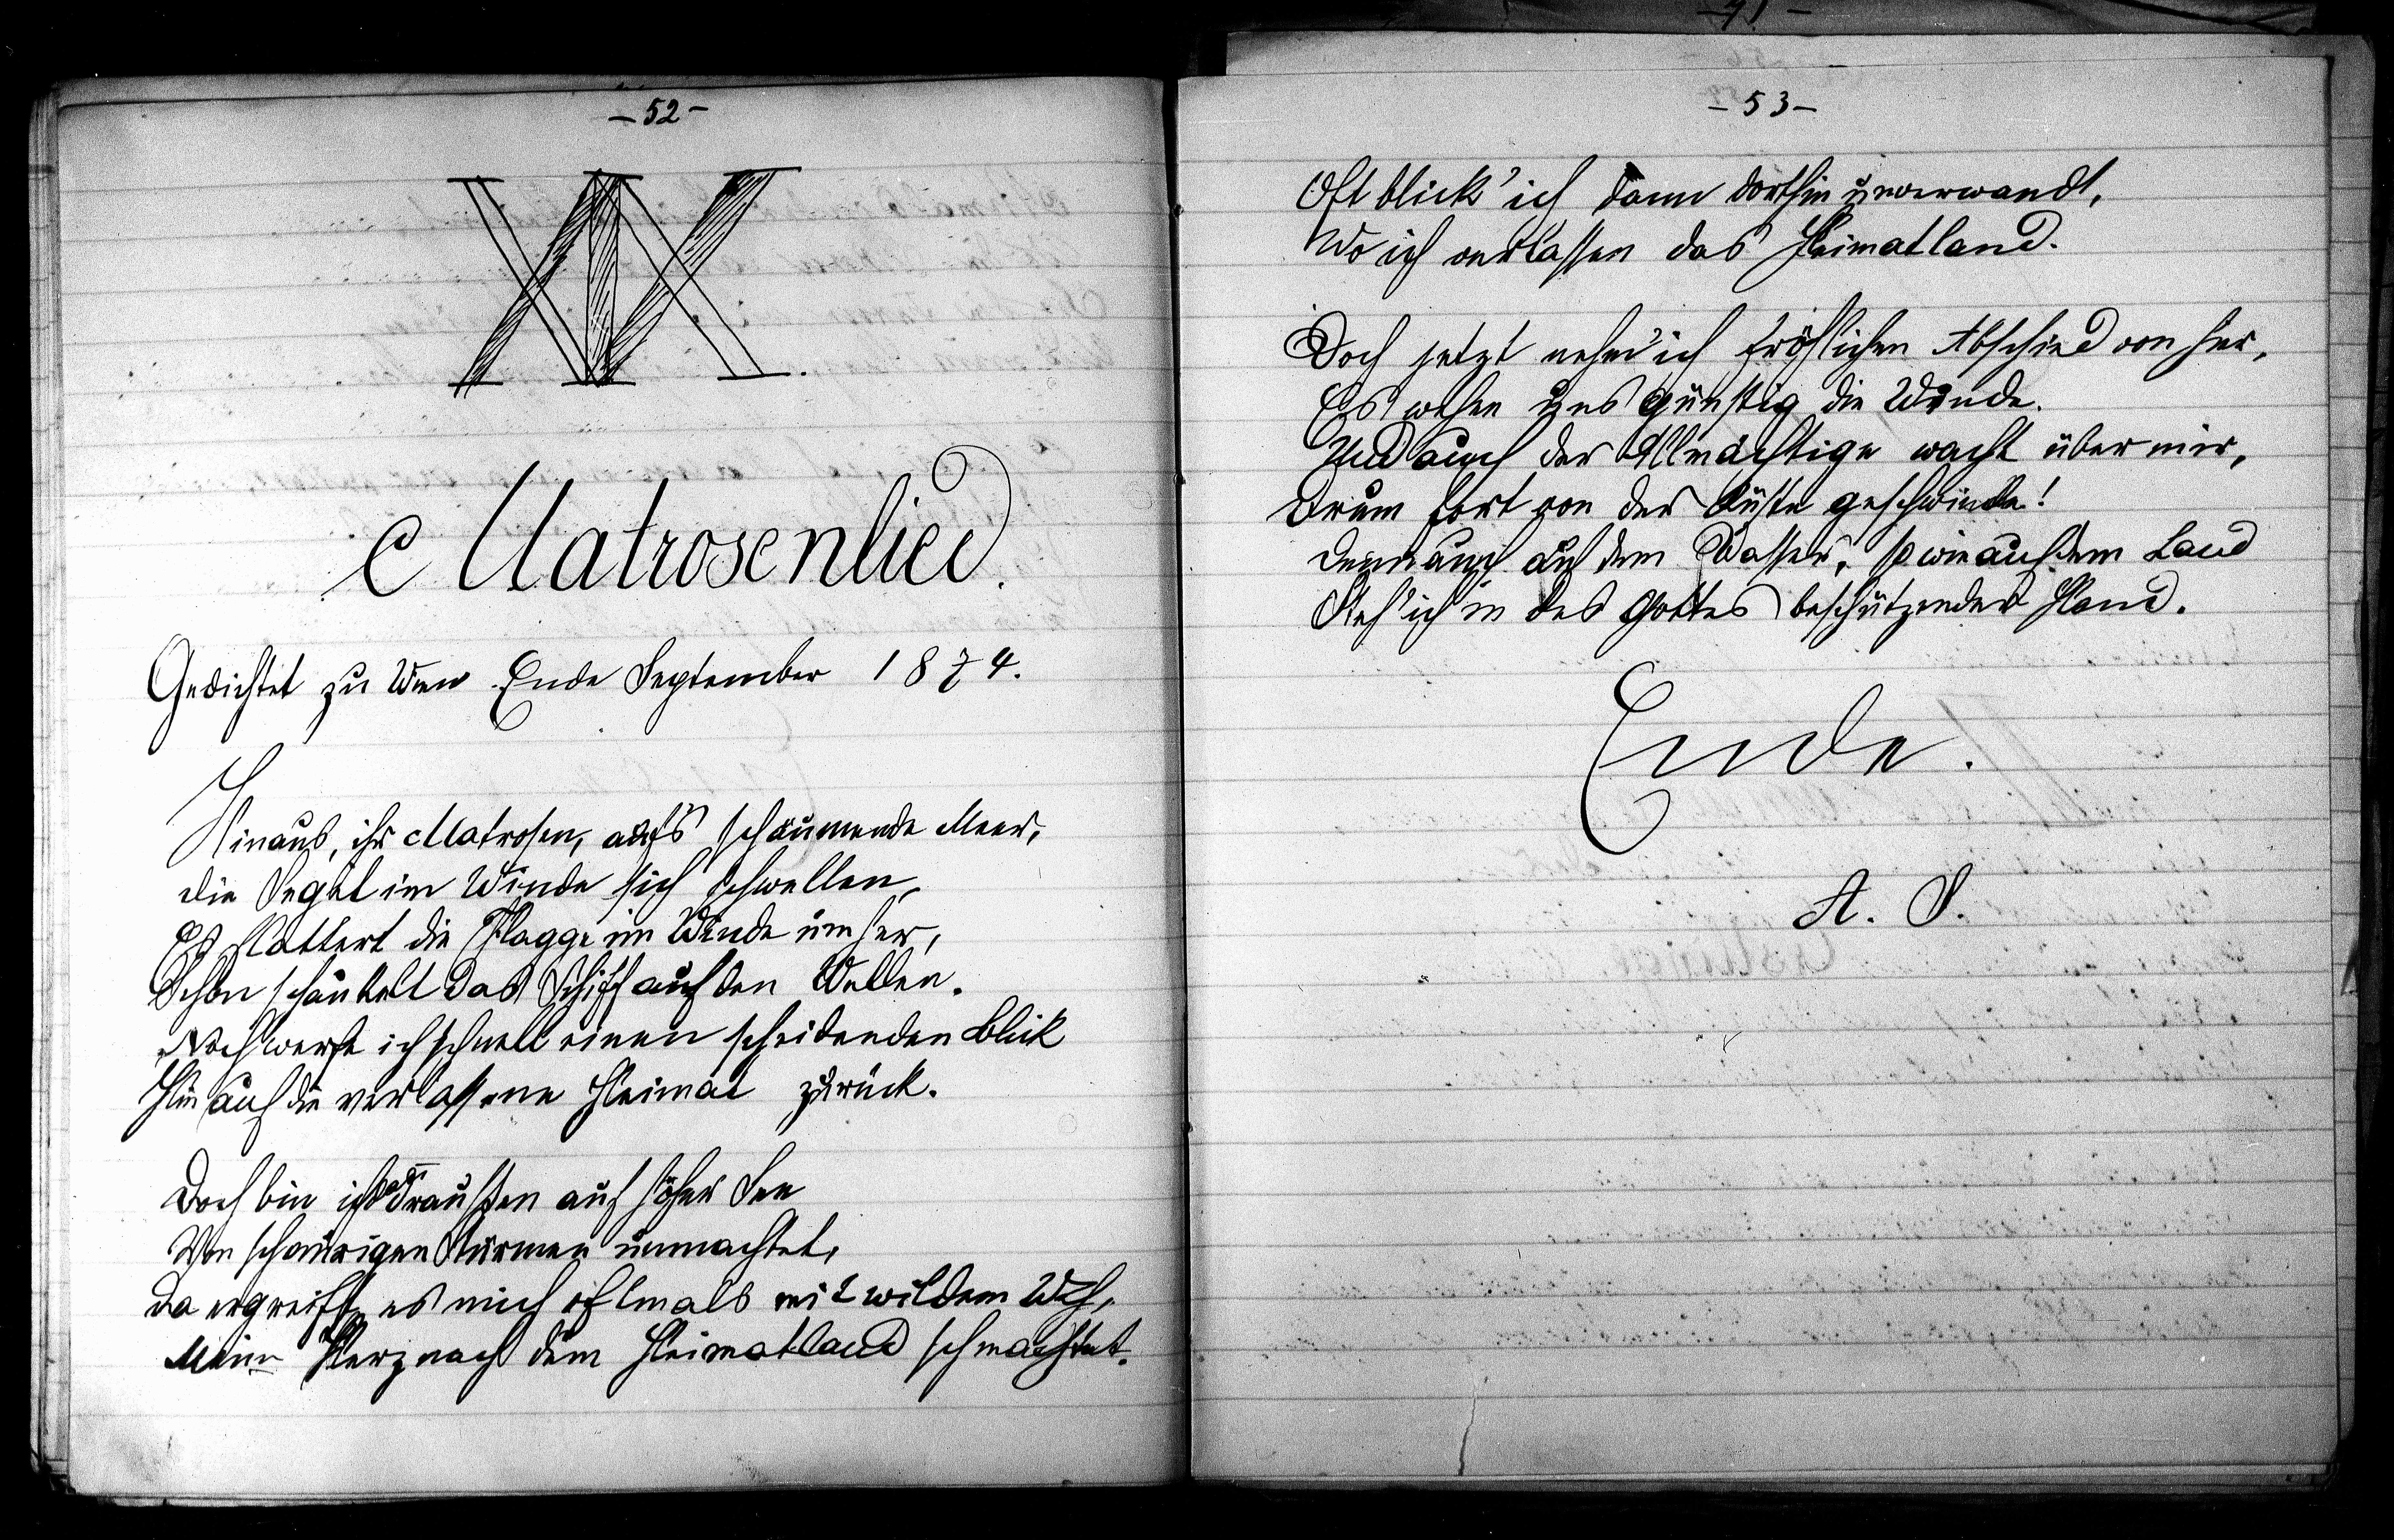 - 52 -
XIX.
Matrosenlied.
Gedichtet zu Wien Ende September 1874.
Hinaus, ihr Matrosen, auf's schäumende Meer,
Die Segel im Winde sich schwellen,
Es flattert die Flagge im Winde umher,
Schon schaukelt das Schiff auf den Wellen.
Noch werfe ich schnell einen scheidenden Blick
Hin auf die verlassene Heimat zurück.
Doch bin ich draußen auf hoher See
Von schaurigen Stürmen umnachtet,
Da ergreift es mich oftmals mit wildem Weh,
Mein Herz nach dem Heimatland schmachtet.
- 53 -
Oft blick' ich dann dorthin unverwandt,
Wo ich verlassen das Heimatland.
Doch jetzt nehm' ich fröhlichen Abschied von hier,
Es wehen uns günstig die Winde.
Und auch der Allmächtige wacht über mir,
Drum fort von der Küste geschwinde!
Denn auch auf dem Wasser, so wie auf dem Land
Steh' ich in des Gottes beschützender Hand.
Ende.
A. S.